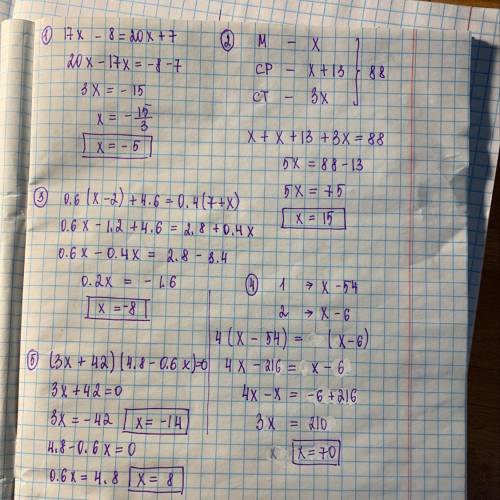 ① 17x - 8 = 20x + 7
20x - 17x = -8 - 7
3x = -15
x = -15/3
x = -5
② М - x
СР - x + 13 } 88
СТ - 3x
x + x + 13 + 3x = 88
5x = 88 - 13
5x = 75
x = 15
③ 0.6(x-2) + 4.6 = 0.4(7+x)
0.6x - 1.2 + 4.6 = 2.8 + 0.4x
0.6x - 0.4x = 2.8 - 3.4
0.2x = -1.6
x = -8
④ 1 → x - 54
2 → x - 6
4(x - 54) = (x - 6)
4x - 216 = x - 6
4x - x = -6 + 216
3x = 210
x = 70
⑤ (3x + 42)(4.8 - 0.6x) = 0
3x + 42 = 0
3x = -42 x = -14
4.8 - 0.6x = 0
0.6x = 4.8 x = 8